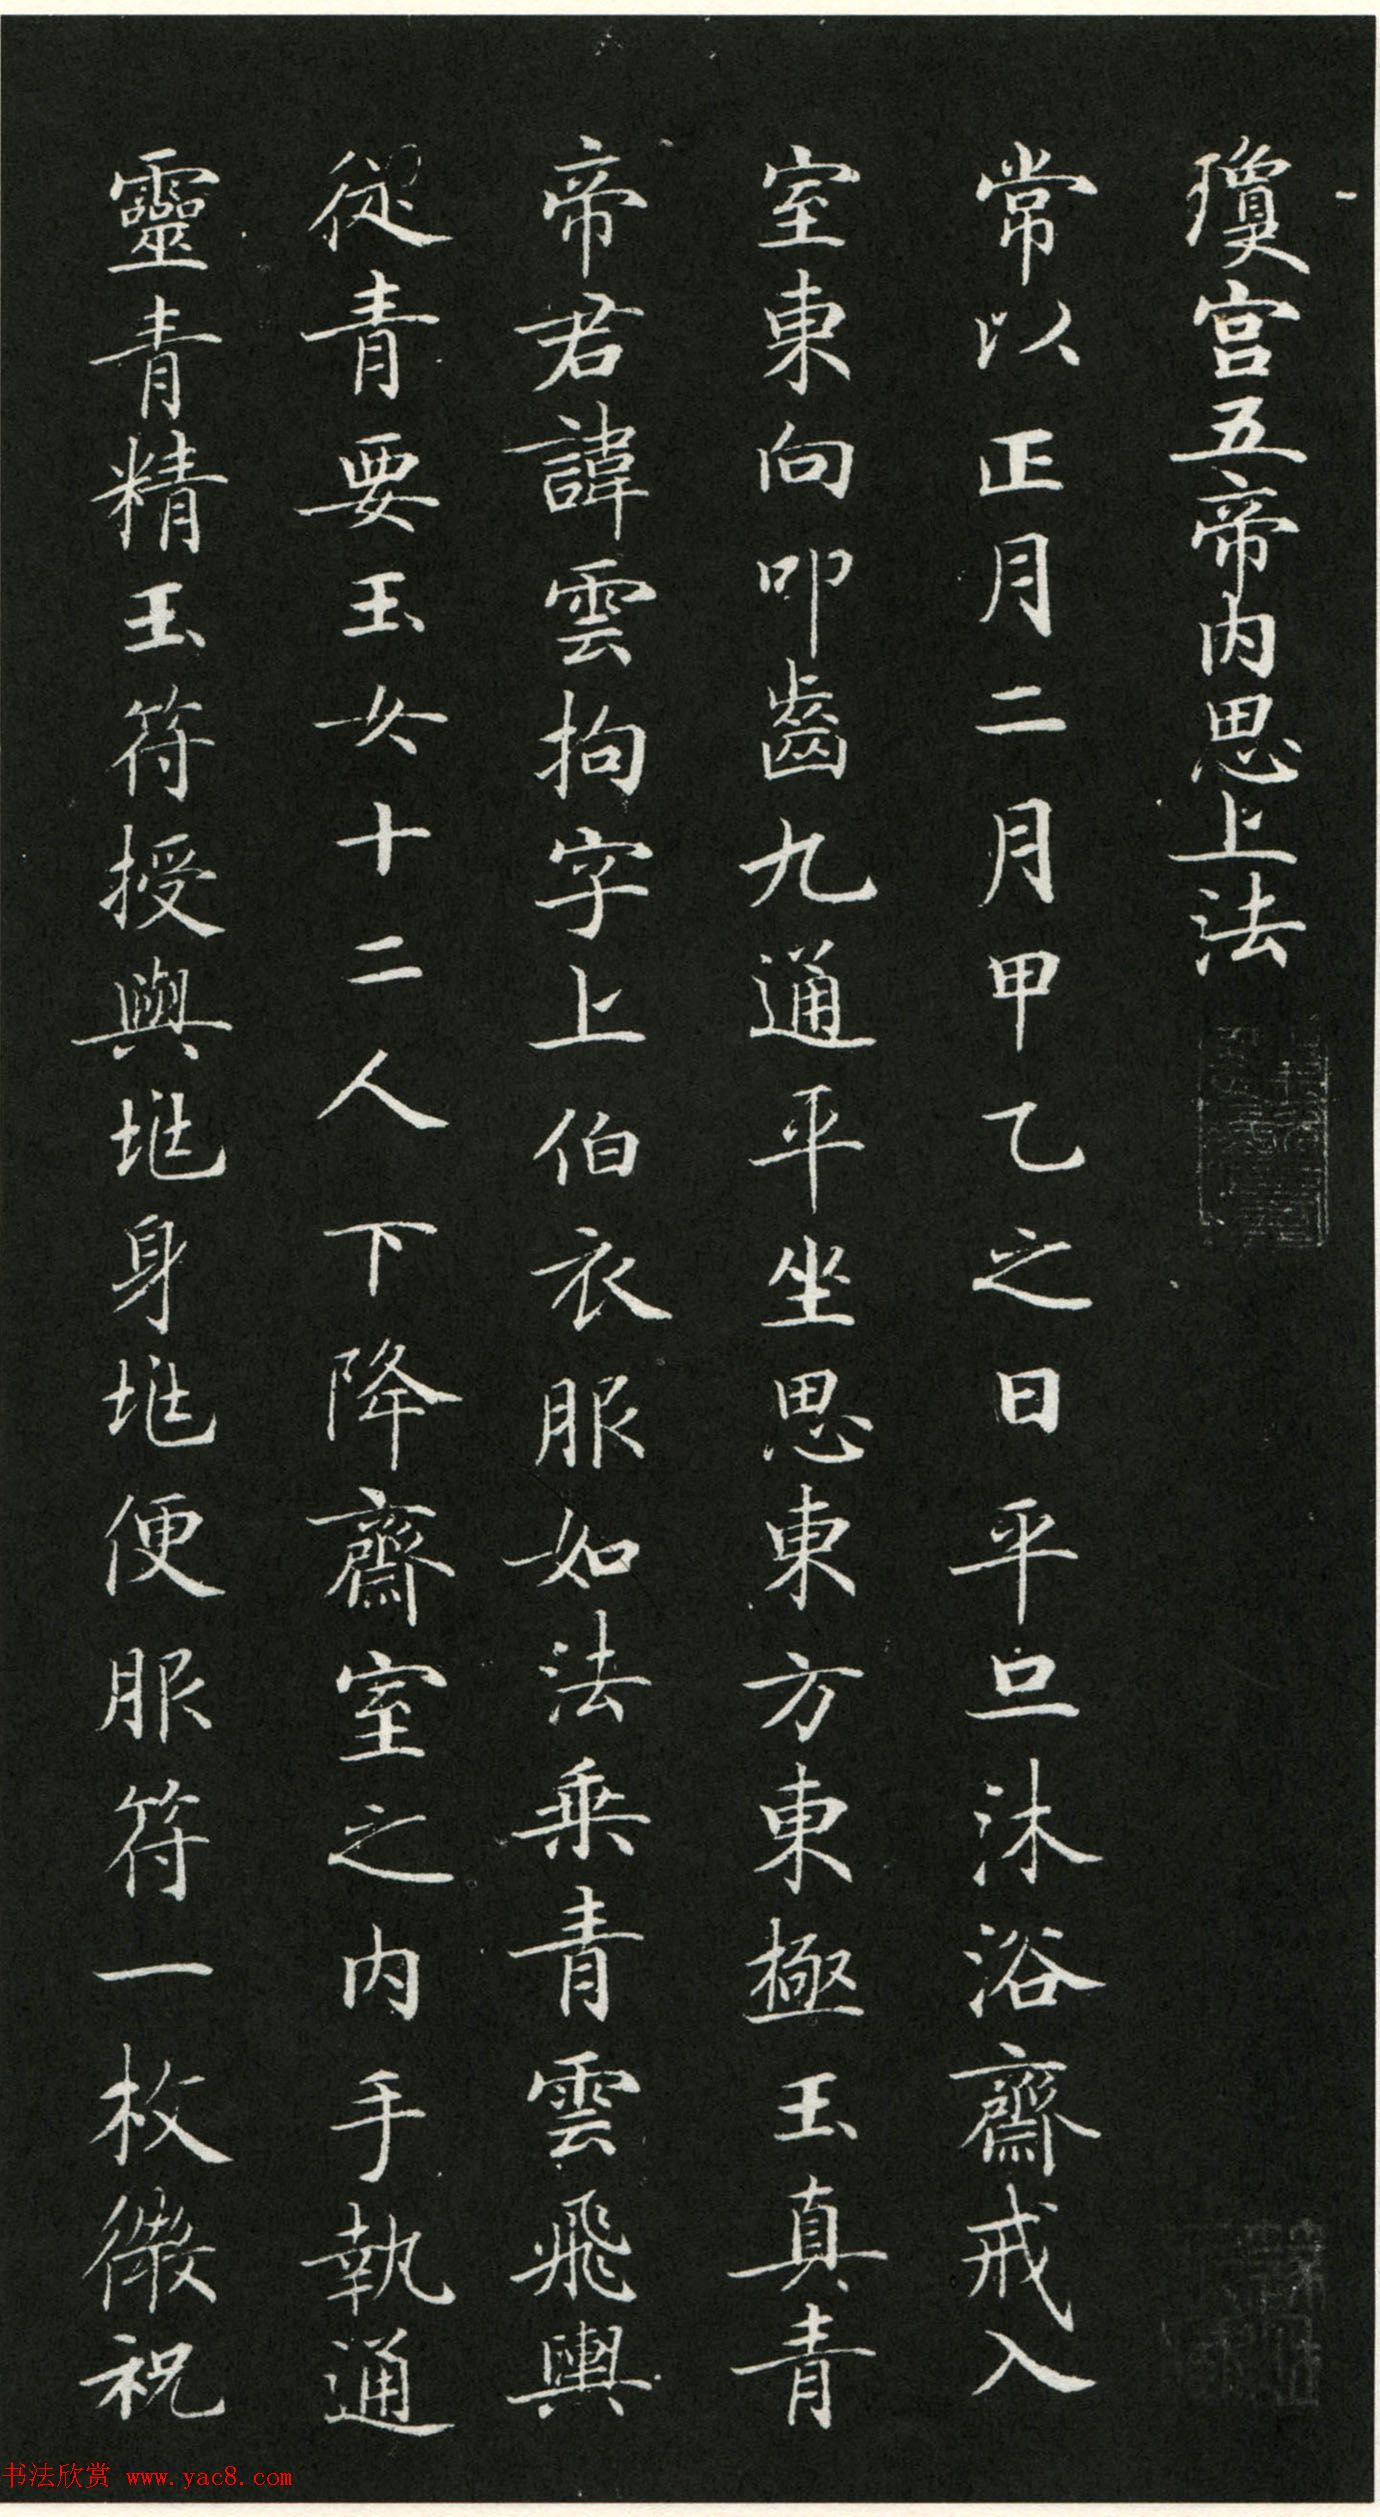 瓊宫五帝内思上法
常以正月二月甲乙之日平旦沐浴齋戒入
室東向叩齒九通平坐思東方東極玉真青
帝君諱雲拘字上伯衣服如法乗青雲飛輿
從青要玉女十二人下降齋室之内手執通
靈青精玉符授與兆身兆便服符一枚微祝
书法欣赏 www.yac8.com